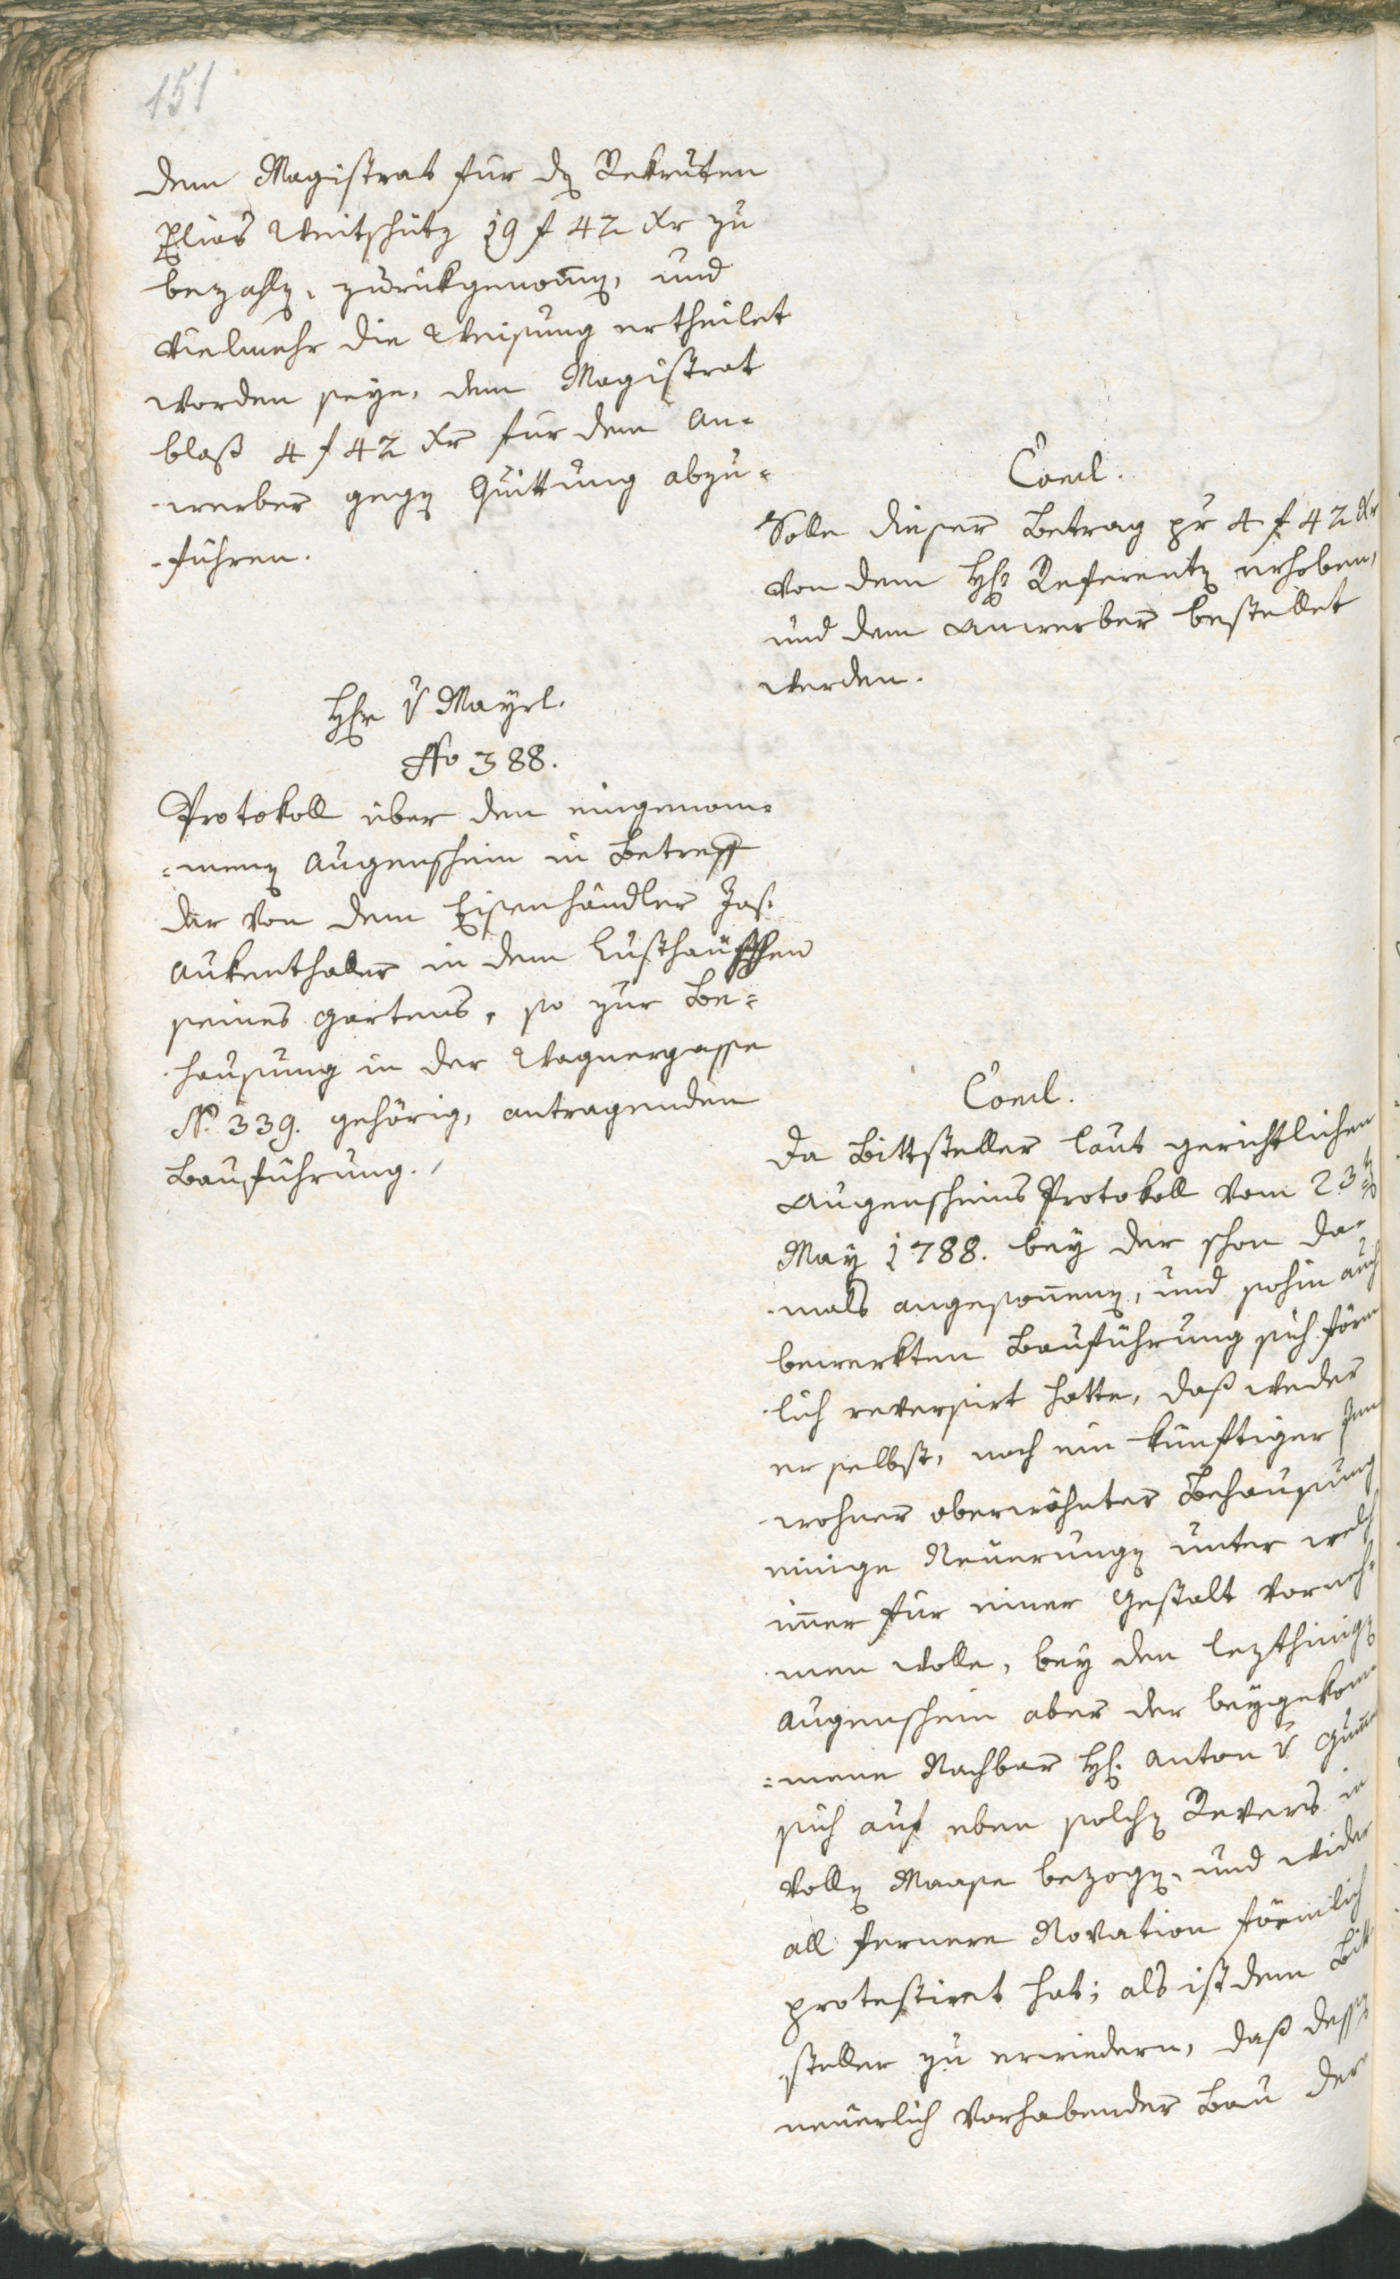 151
dem Magistrat für dz Rekruten
Elias Weitschütz 19 f 42 xr zu
bezahlen, zurückgenomen, und
vielmehr die Weisung ertheilet
worden seye, dem Magistrat
bloß 4 f 42 xr für dem An-
werber gegen Quittung abzu-
führen.
Concl.
Solle dieser Betrag pr 4 f 42 xr
von dem H: Referenten erhoben,
und dem Anwerber bestellet
werden.
Hr v Mayrl.
No 388.
Protokoll über den eingenom-
=menen Augenschein in Betreff
der von dem Eisenhändler Jos:
Aukenthaller in dem Lusthäuschen
seines Gartens, so zur Be=
hausung in der Wagnergasse
No. 339. gehörig, antragenden
Bauführung.
Concl.
Da Bittsteller laut gerichtlichen
Augenscheins Protokoll vom 23ten
May 1788. bey der schon da-
mals angesonnenen, und sohin auch
bewerkten Bauführung sich förm
lich reversirt hatte, daß weder
er selbst, noch ein künftiger Inn
wohner oberwöhnter Behausung
einige Neuerungen unter welch
imer für einer Gestalt vorneh-
men wolle, bey den lezthinigen
Augenschein aber der beygekom-
=mene Nachbar H: Anton v
sich auf eben solchen Revers in
vollen Maase bezogen, und wider
all fernere Novation förmlich
protestiret hat; als ist dem Bitt
steller zu erwiedern, daß dessen
neuerlich vorhabender Bau der